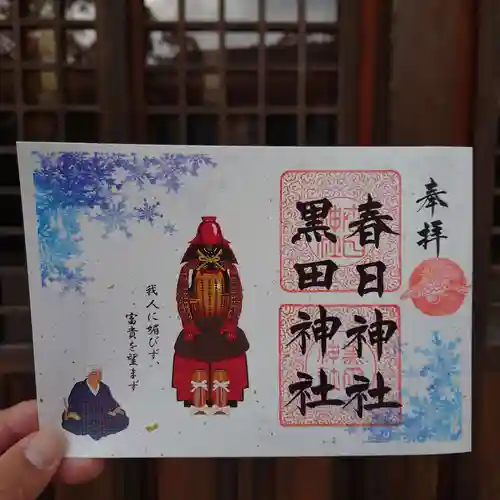 奉拝
春日神社
黒田神社
我人に媚びず、
富貴を望まず